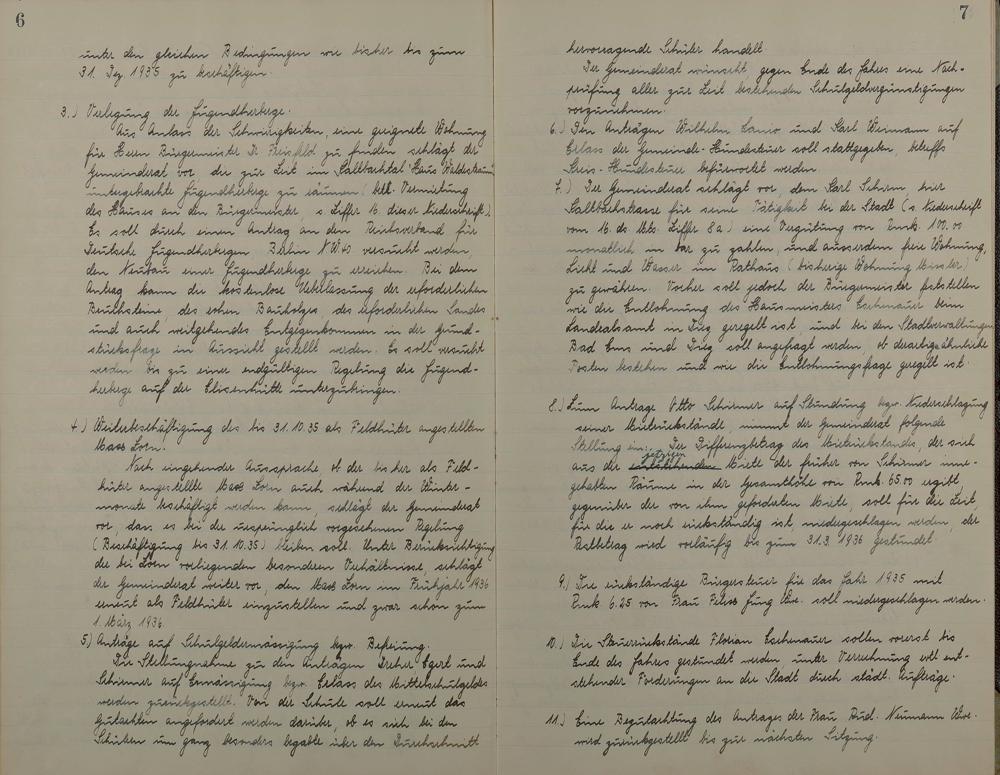 6
unter den gleichen Bedingungen wie bisher bis zum
31. Dez 1935 zu beschäftigen.
3.) Verlegung der Jugendherberge.
Aus Anlass der Schwierigkeiten, eine geeignete Wohnung
für Herrn Bürgermeister Dr. zu finden schlägt der
Gemeinderat vor, der zur Zeit im Kaltbachtal "Haus Waldesraum"
untergebrachte Jugendherberge zu räumen (betr. Vermietung
des Hauses an den Bürgermeister, s. Ziffer 16. dieser Niederschrift.)
Es soll durch einen Antrag an den Reichsverband für
Deutsche Jugendherbergen, Berlin N.W 40 versucht werden,
den Neubau einer Jugendherberge zu erreichen. Bei dem
Antrag kann die kostenlose Ueberlassung der erforderlichen
Bruchsteine des rohen Bauholzes, des erforderlichen Sandes
und auch weitgehendes Entgegenkommen in der Grund-
stücksfrage in Aussicht gestellt werden. Es soll versucht
werden bis zu einer endgültigen Regelung die Jugend-
herberge auf der Elisenhütte unterzubringen.
4.) Weiterbeschäftigung des bis 31.10.35 als Feldhüter angestellten
Lorn.
Nach eingehender Aussprache ob der bisher als Feld-
hüter angestellte Lorn auch während der Winter-
monate beschäftigt werden kann, schlägt der Gemeinderat
vor, dass es bei der ursprünglich vorgesehenen Regelung
(Beschäftigung bis 31.10.35) bleiben soll. Unter Berücksichtigung
der bei Lorn vorliegenden besonderen Verhältnisse, schlägt
der Gemeinderat weiter vor, den Lorn im Frühjahr 1936
erneut als Feldhüter einzustellen und zwar schon zum
1. März 1936.
5.) Anträge auf Schulgeldermässigung bzw. Befreiung.
Die Stellungnahme zu den Anträgen Dreher Egert und
Schirmer auf Ermässigung bzw. Erlass des Mittelschulgeldes
werden zurückgestellt. Von der Schule soll erneut das
Gutachten angefordert werden darüber, ob es sich bei den
Schülern um ganz besonders begabte über den Durchschnitt
7
hervorragende Schüler handelt.
Der Gemeinderat wünscht, gegen Ende des Jahres eine Nach-
prüfung aller zur Zeit bestehenden Schulgeldvergünstigungen
vorzunehmen.
6.) Den Anträgen Wilhelm und Karl Weimann auf
Erlass der Gemeinde-Hundesteuer soll stattgegeben, betreffs
Kreis-Hundesteuer befürwortet werden.
7.) Der Gemeinderat schlägt vor, dem Karl Schirm, hier
Kaltbachstrasse für seine Tätigkeit bei der Stadt (s. Niederschrift
vom 16. ds. Mts. Ziffer 8a) eine Vergütung von Rmk. 100.00
monatlich in bar zu zahlen, und ausserdem freie Wohnung,
Licht und Wasser im Rathaus (bisherige Wohnung)
zu gewähren. Vorher soll jedoch der Bürgermeister feststellen
wie die Entlohnung des Hausmeisters Eschenauer beim
Landratsamt in Diez geregelt ist, und bei den Stadtverwaltungen
Bad Ems und Diez soll angefragt werden, ob derartige ähnliche
Posten bestehen und wie die Entlohnungsfrage geregelt ist.
8.) Zum Antrage Otto Schirmer auf Stundung bzw. Niederschlagung
seiner Mietrückstände, nimmt der Gemeinderat folgende
Stellung ein: Der Differenzbetrag des Mietrückstandes, der sich
jetzigen
aus der Miete der früher von Schirmer inne-
gehabten Räume in der Gesamthöhe von Rmk. 65.00 ergibt,
gegenüber der von ihm geforderten Miete, soll für die Zeit,
für die er noch rückständig ist, niedergeschlagen werden, der
Restbetrag wird vorläufig bis zum 31.3.1936 gestundet.
9.) Die rückständige Bürgersteuer für das Jahr 1935 mit
Rmk 6.25 von Frau Jung Wwe. soll niedergeschlagen werden.
10.) Die Steuerrückstände Florian Eschenauer sollen vorerst bis
Ende des Jahres gestundet werden, unter Verrechnung evtl. ent-
stehender Forderungen an die Stadt durch städt. Aufträge.
11.) Eine Begutachtung des Antrages der Frau Rud. Neumann Wwe.
wird zurückgestellt bis zur nächsten Sitzung.